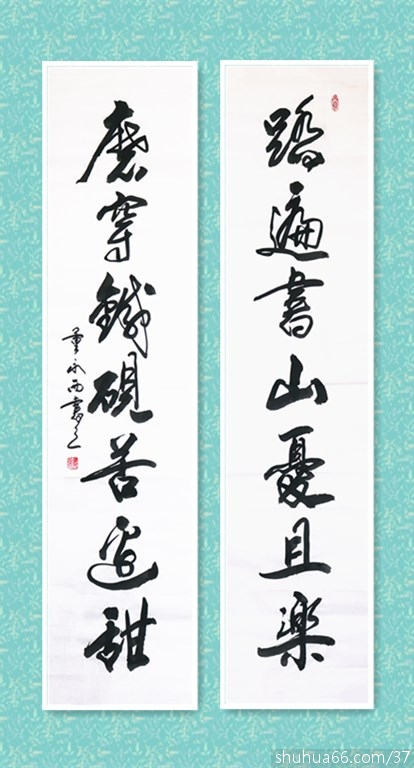 踏遍書山憂且樂
磨穿鐵硯苦還甜
董永西書
shuhua66.com/37